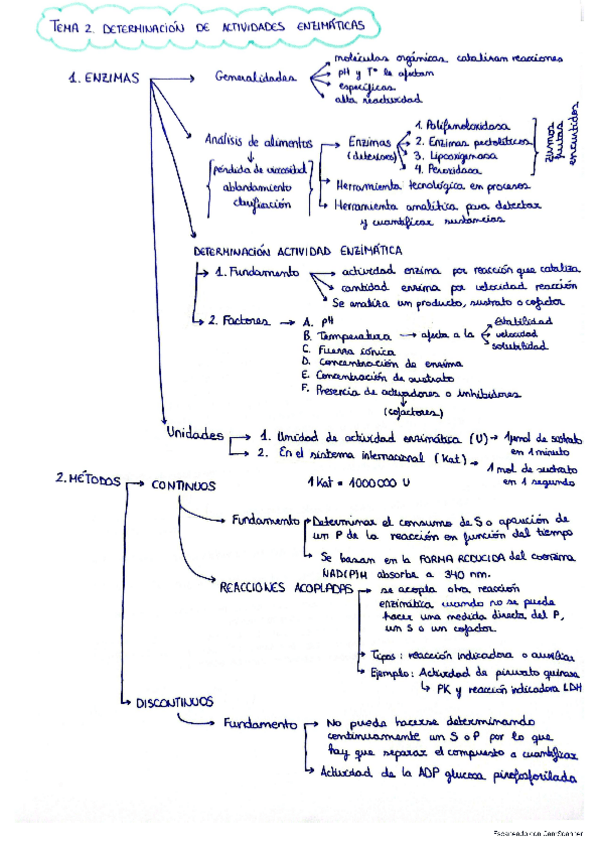 TEMA 2. DETERMINACIÓN DE ACTIVIDADES ENZIMÁTICAS
1. ENZIMAS
Generalidades
moléculas orgánicas catalizan reacciones
pH y Tª le afectan
específicas
alta reactividad
Análisis de alimentos
pérdida de viscosidad
ablandamiento
clarificación
Enzimas
(deterioro)
1. Polifenoloxidasa
2. Enzimas pectolíticos
3. Lipoxigenasa
4. Peroxidasa
zumos
frutas
encurtidos
Herramienta tecnológica en procesos
Herramienta analítica para detectar
y cuantificar sustancias
DETERMINACIÓN ACTIVIDAD ENZIMÁTICA
1. Fundamento
actividad enzima por reacción que cataliza
cantidad enzima por velocidad reacción
Se analiza un producto, sustrato o cofactor
2. Factores
A. pH
B. Temperatura
afecta a la
Estabilidad
velocidad
solubilidad
C. Fuerza iónica
D. Concentración de enzima
E. Concentración de sustrato
F. Presencia de activadores o inhibidores
(cofactores)
Unidades
1. Unidad de actividad enzimática (U)
1µmol de sustrato
en 1 minuto
2. En el sistema internacional (Kat)
1 mol de sustrato
en 1 segundo
1 Kat = 1000000 U
2. MÉTODOS
CONTINUOS
Fundamento
Determinar el consumo de S o aparición de
un P de la reacción en función del tiempo
Se basan en la FORMA REDUCIDA del coenzima
NAD(P)H absorbe a 340 nm.
REACCIONES ACOPLADAS
se acopla otra reacción
enzimática cuando no se puede
hacer una medida directa del P,
un S o un cofactor.
Tipos: reacción indicadora o auxiliar
Ejemplo: Actividad de piruvato quinasa
PK y reacción indicadora LDH
DISCONTINUOS
Fundamento
No puede hacerse determinando
continuamente un S o P por lo que
hay que separar el compuesto a cuantificar
Actividad de la ADP glucosa pirofosforilada
Escaneado con CamScanner